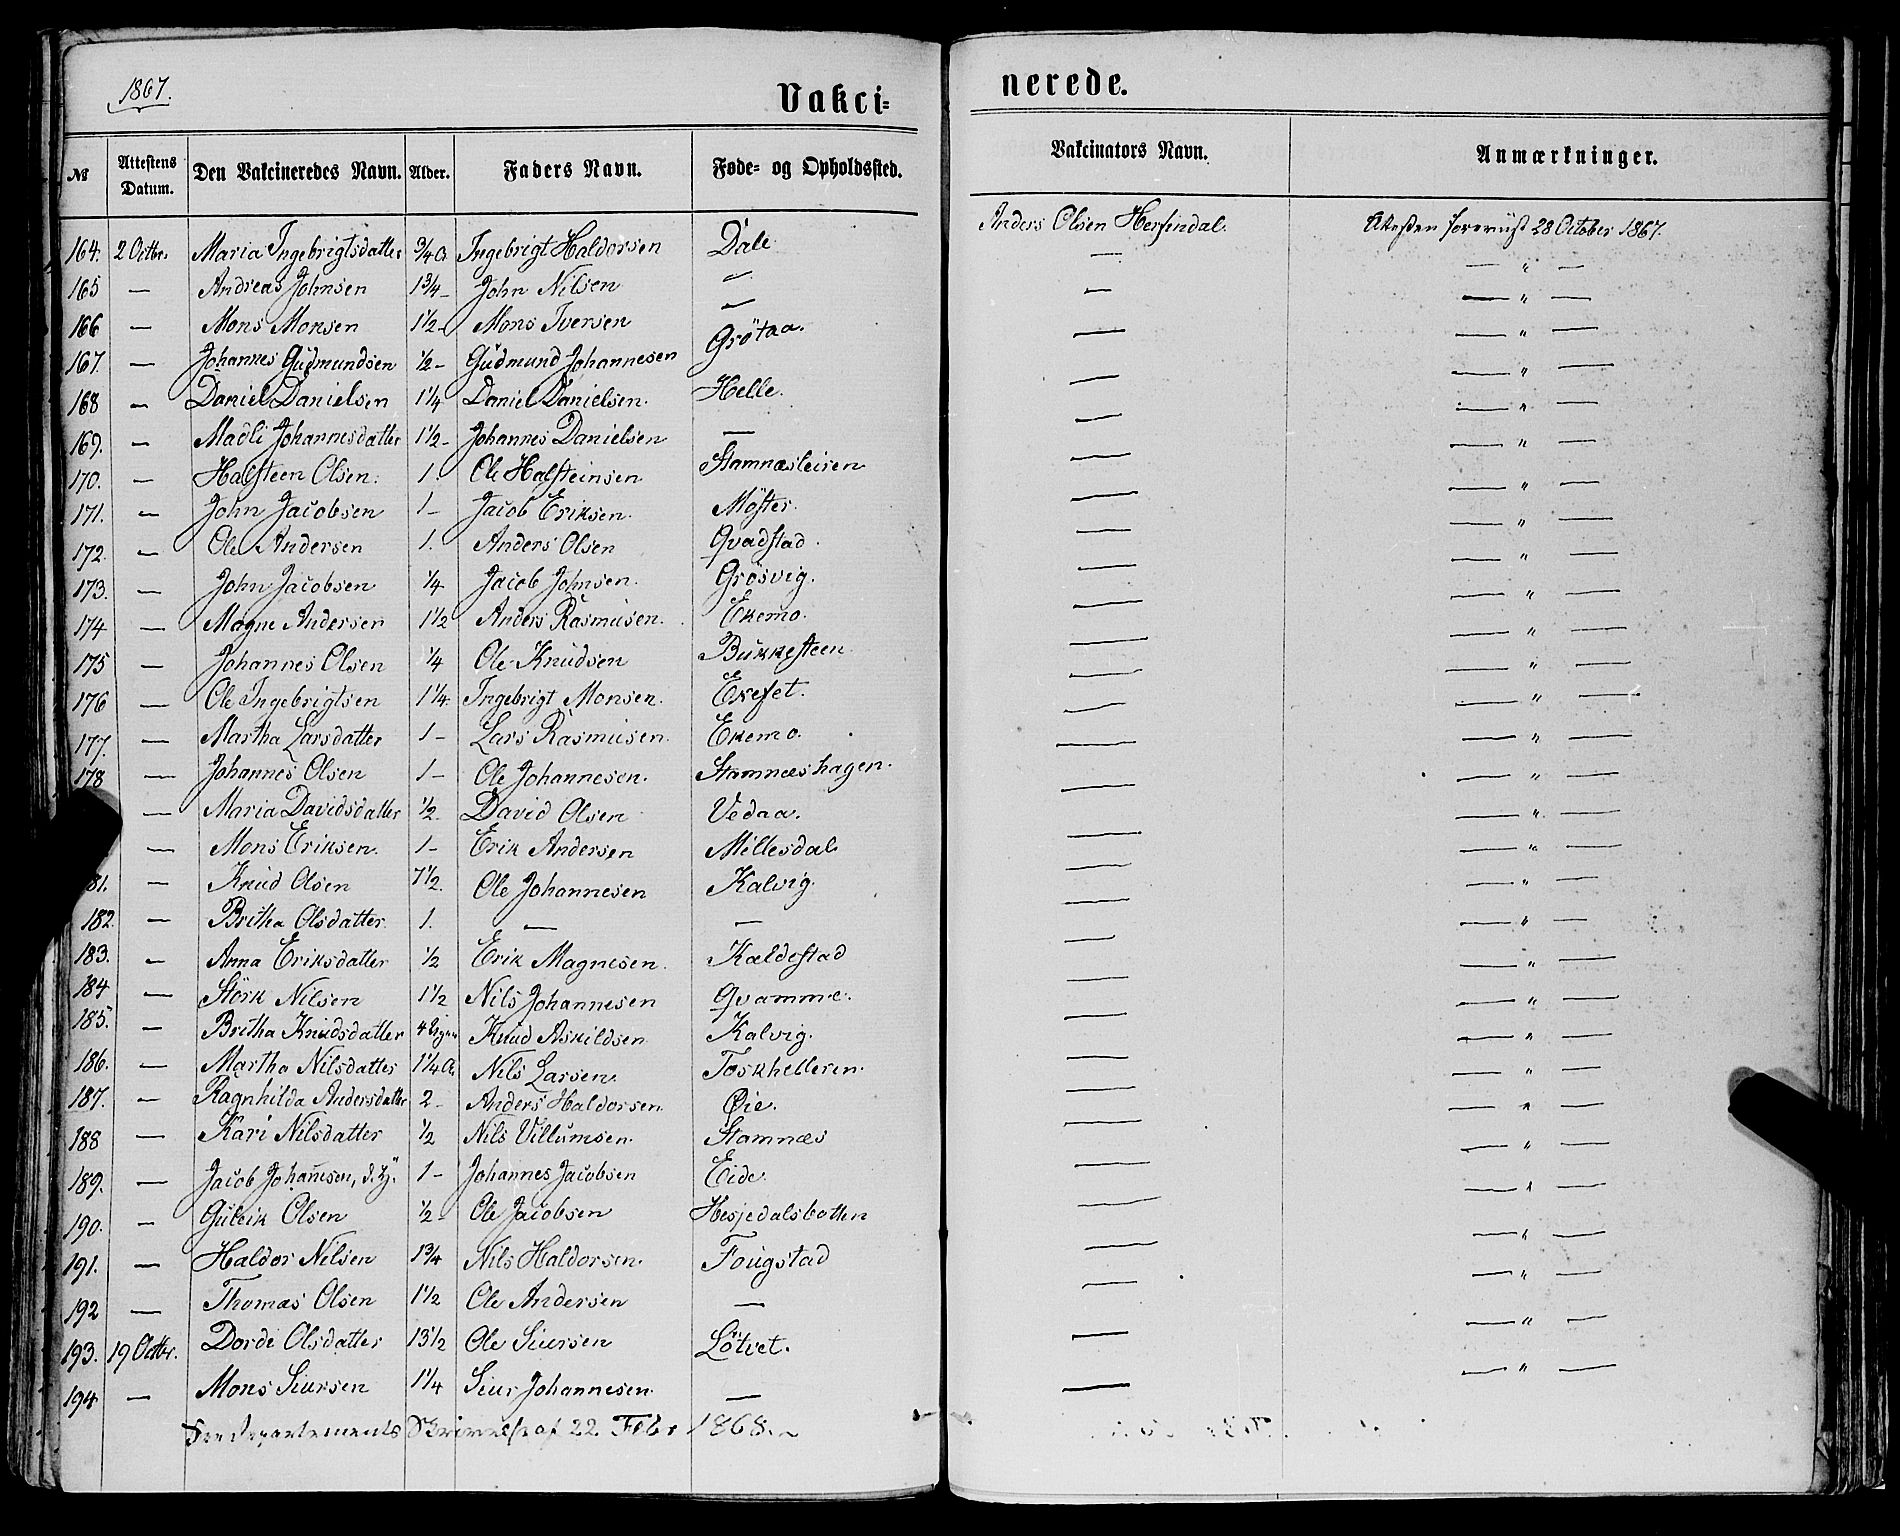 1867.
Vakci=nerede.
№ Attestens Datum. Den Vakcineredes Navn. Alder. Faders Navn. Føde= og Opholdssted. Vakcinators Navn. Anmærkninger.
164. 2 Octbr. Maria Ingebrigtsdatter 3/4 A. Ingebrigt Haldorsen Dale Anders Olsen Hersindal. Attesten foreviist 28 October 1867.
165 — Andreas Johnsen 1 3/4 – John Nilsen — — — " —
166 — Mons Monsen 1 1/2 – Mons Iversen — — — " —
167. — Johannes Gudmundsen 1/2 – Gudmund Johannesen Grötaa. — — " —
168 — Daniel Danielsen 1 1/4 Daniel Danielsen. Helle. — — " —
169. — Madli Johannesdatter 1 1/2 – Johannes Danielsen — — — " —
170. — Halsteen Olsen. 1. Ole Halsteinsen Stamnæsleisen — — " —
171. — John Jacobsen 1 – Jacob Eriksen. Möster. — — " —
172. — Ole Andersen 1. Anders Olsen Qvadstad. — — " —
173. — John Jacobsen 1/4 Jacob Johnsen. Grösvig. — — " —
174 — Magne Andersen 1 1/2 Anders Rasmusen. Ekemo. — — " —
175 — Johannes Olsen 1/4 Ole Knudsen Bukkesteen — — " —
176 — Ole Ingebrigtsen 1 1/4 Ingebrigt Monsen. Ekeset. — — " —
177. — Martha Larsdatter 1 – Lars Rasmusen. Ekemo. — — " —
178 — Johannes Olsen 1 – Ole Johannesen. Stamnæshagen. — — " —
— Maria Davidsdatter 1/2. David Olsen Vedaa. — — " —
— Mons Eriksen. 1 – Erik Andersen Millesdal — — " —
81. — Knud Olsen 7 1/2. Ole Johannesen Kalvig. — — " —
182. — Britha Olsdatter 1. — — — — " —
183. — Anna Eriksdatter 1/2 Erik Magnesen. Kaldestad — — " —
184 — Störk Nilsen 1 1/2 Nils Johannesen Qvamme. — — " —
185. — Britha Knudsdatter 4 Knud Askildsen Kalvig. — — " —
186. — Martha Nilsdatter 1 1/4 A. Nils Larsen. Toskhelleren. — — " —
187. — Ragnhilda Andersdatter 2 – Anders Haldorsen. Øie. — — " —
188 — Kari Nilsdatter 1/2 Nils Villumsen. Stamnæs — — " —
189. — Jacob Johannesen, d. y. 1 – Johannes Jacobsen Eide. — — " —
190. — Guleik Olsen 1/2 – Ole Jacobsen Hesjedalsbotten — — " —
191. — Haldor Nilsen 1 3/4 Nils Haldorsen. Fougstad — — " —
192 — Thomas Olsen 1 1/2 Ole Andersen — — — " —
193. 19 Octbr. Dorde Olsdatter 13 1/2 Ole Siursen Lötvet. — — " —
194 — Mons Siursen 1 1/4 Siur Johannesen. — — — " —
departements Skrivelse af 22. Febr 1868.